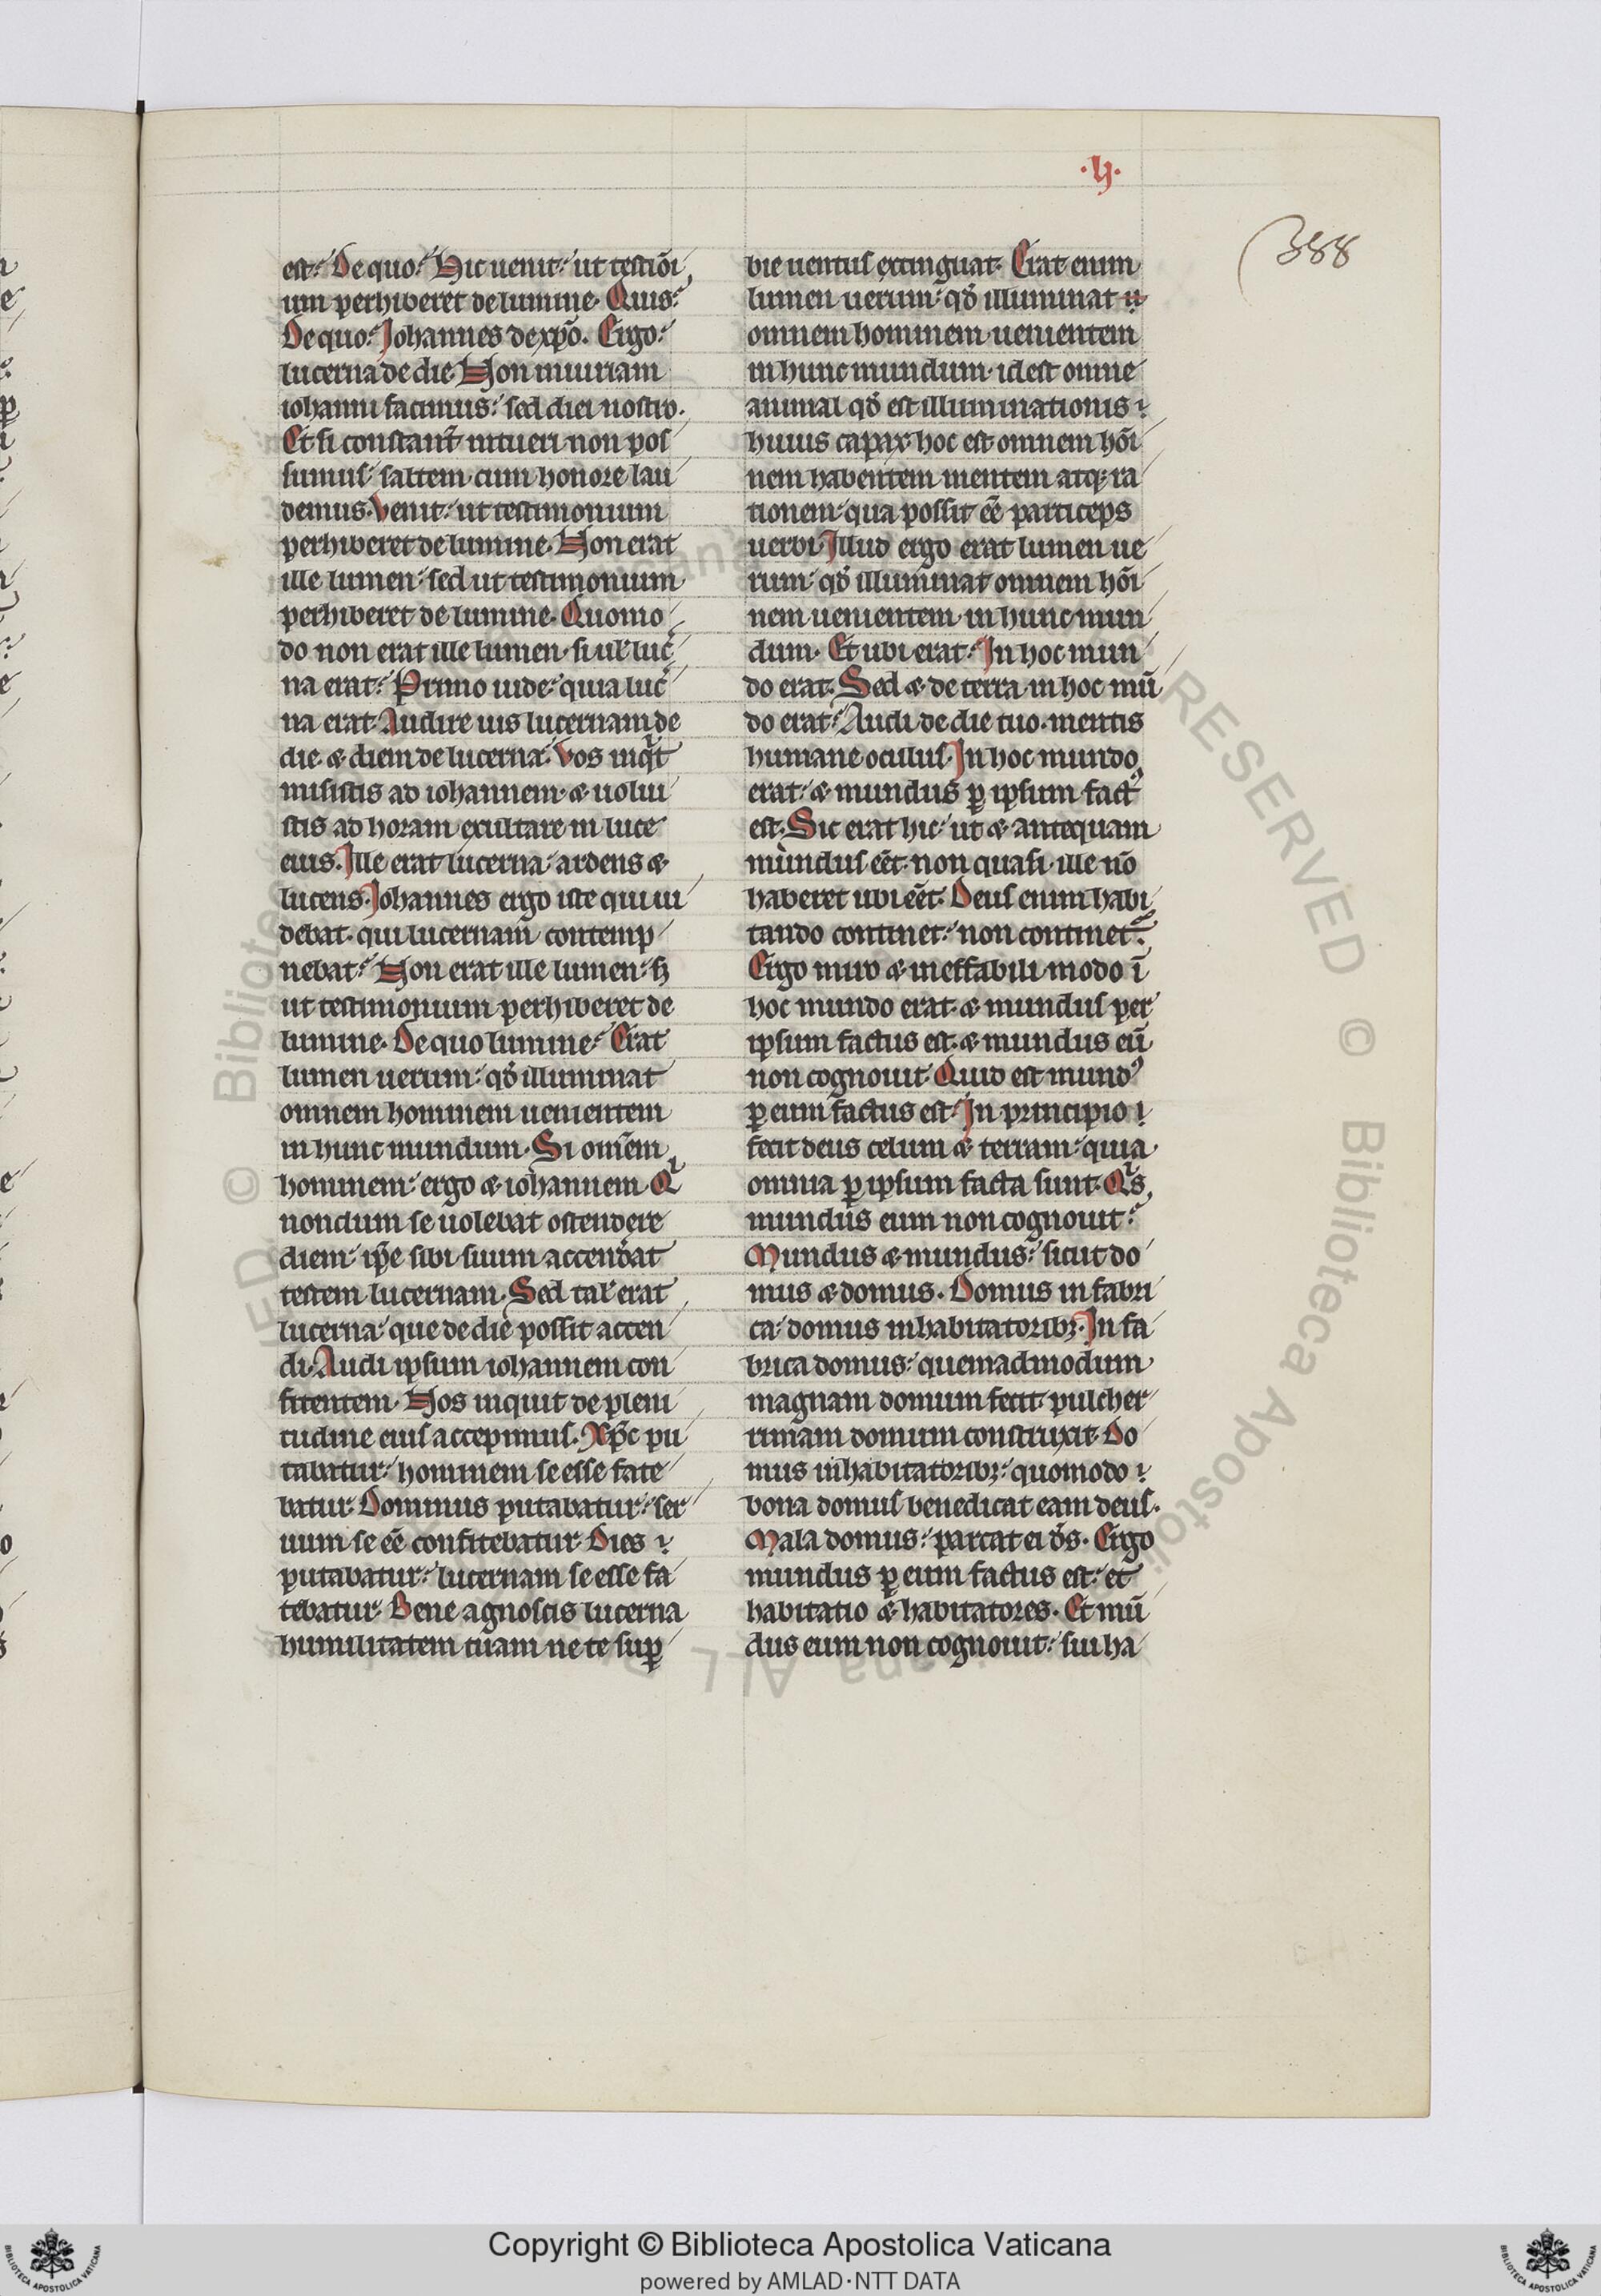 .ij.
388
est. De quo. Hic uenit. ut testiōi
um perhiberet de lumine. Quis.
De quo. Johannes de xp̄o. Ergo.
lucerna de die. Non iniuriam
iohanni facimus. sed diei nostro.
Et si constant̄ intueri non pos
sumus. saltem cum honore lau
demus. Venit. ut testimonium
perhiberet de lumine. Non erat
ille lumen. sed ut testimonium
perhiberet de lumine. Quomo
do non erat ille lumen. si ul̓ luc̄
na erat. Primo uide. quia luc̄
na erat. Audire uis lucernam de
die. & diem de lucerna. Vos inqͥt
misistis ad iohannem. & uolui
stis ad horam exultare in luce
eius. Ille erat lucerna. ardens &
lucens. Johannes ergo iste qui ui
debat. qui lucernam contemp
nebat. Non erat ille lumen. sꝫ
ut testimonium perhiberet de
lumine. De quo lumine. Erat
lumen uerum. qd̄ illuminat
omnem hominem uenientem
in hunc mundum. Si om̄em
hominem. ergo & iohannem. Qͥ
nondum se uolebat ostendere
diem. ip̄e sibi suum accend̓at
testem lucernam. Sed tal̓ erat
lucerna. que de die possit accen
di. Audi ipsum iohannem con
fitentem. Nos inquit de pleni
tudine eius accepimus. Xp̄c pu
tabatur. hominem se esse fate
batur. Dominus putabatur. ser
uum se ēē confitebatur. Dies
putabatur. lucernam se esse fa
tebatur. Bene agnoscis lucerna
humilitatem tuam ne te suꝑ
bie uentus extinguat. Erat enim
lumen uerum. qd̄ illuminat
omnem hominem uenientem
in hunc mundum. idest omne
animal qd̄ est illuminationis
huius capax. hoc est omnem hōi
nem habentem mentem atqꝫ ra
tionem. qua possit ēē particeps
uerbi. Illud ergo erat lumen ue
rum. qd̄ illuminat omnem hōi
nem uenientem. in hunc mun
dum. Et ubi erat. In hoc mun
do erat. Sed & de terra in hoc mū
do erat. Audi de die tuo. mentis
humane oculus. In hoc mundo
erat. & mundus ꝑ ipsum factꝰ
est. Sic erat hic. ut & antequam
mundus eēt. non quasi ille nō
haberet ubi eēt. Deus enim habi
tando continet. non continet᷑.
Ergo miro & ineffabili modo ī
hoc mundo erat. & mundus per
ipsum factus est. & mundus eū
non cognouit. Quid est mundꝰ
ꝑ eum factus est. In principio
fecit deus celum & terram. quia
omnia ꝑ ipsum facta sunt. Qͥs
mundus eum non cognouit.
Mundus & mundus. sicut do
mus & domus. Domus in fabri
ca. domus inhabitatoribꝫ. In fa
brica domus. quemadmodum
magnam domum fecit. pulcher
rimam domum construxit. Do
mus inhabitatoribꝫ. quomodo
bona domus benedicat eam deus.
Mala domus. parcat ei ds̄. Ergo
mundus ꝑ eum factus est. et
habitatio & habitatores. Et mū
dus eum non cognouit. sui ha
Copyright © Biblioteca Apostolica Vaticana
powered by AMLAD·NTT DATA